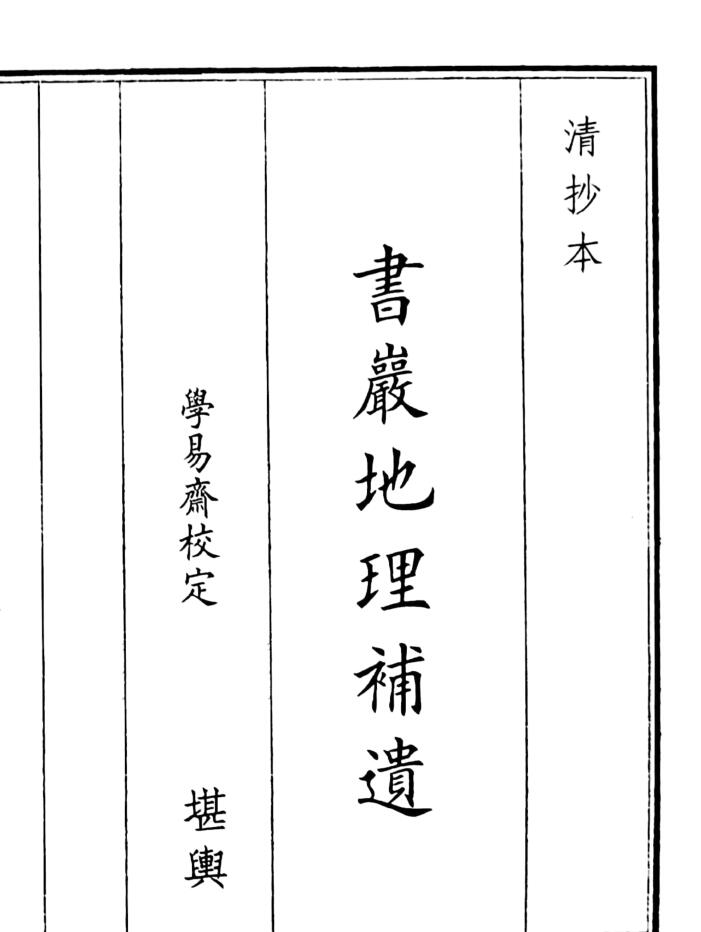 清抄本
書巖地理補遺
學易齋校定
堪輿